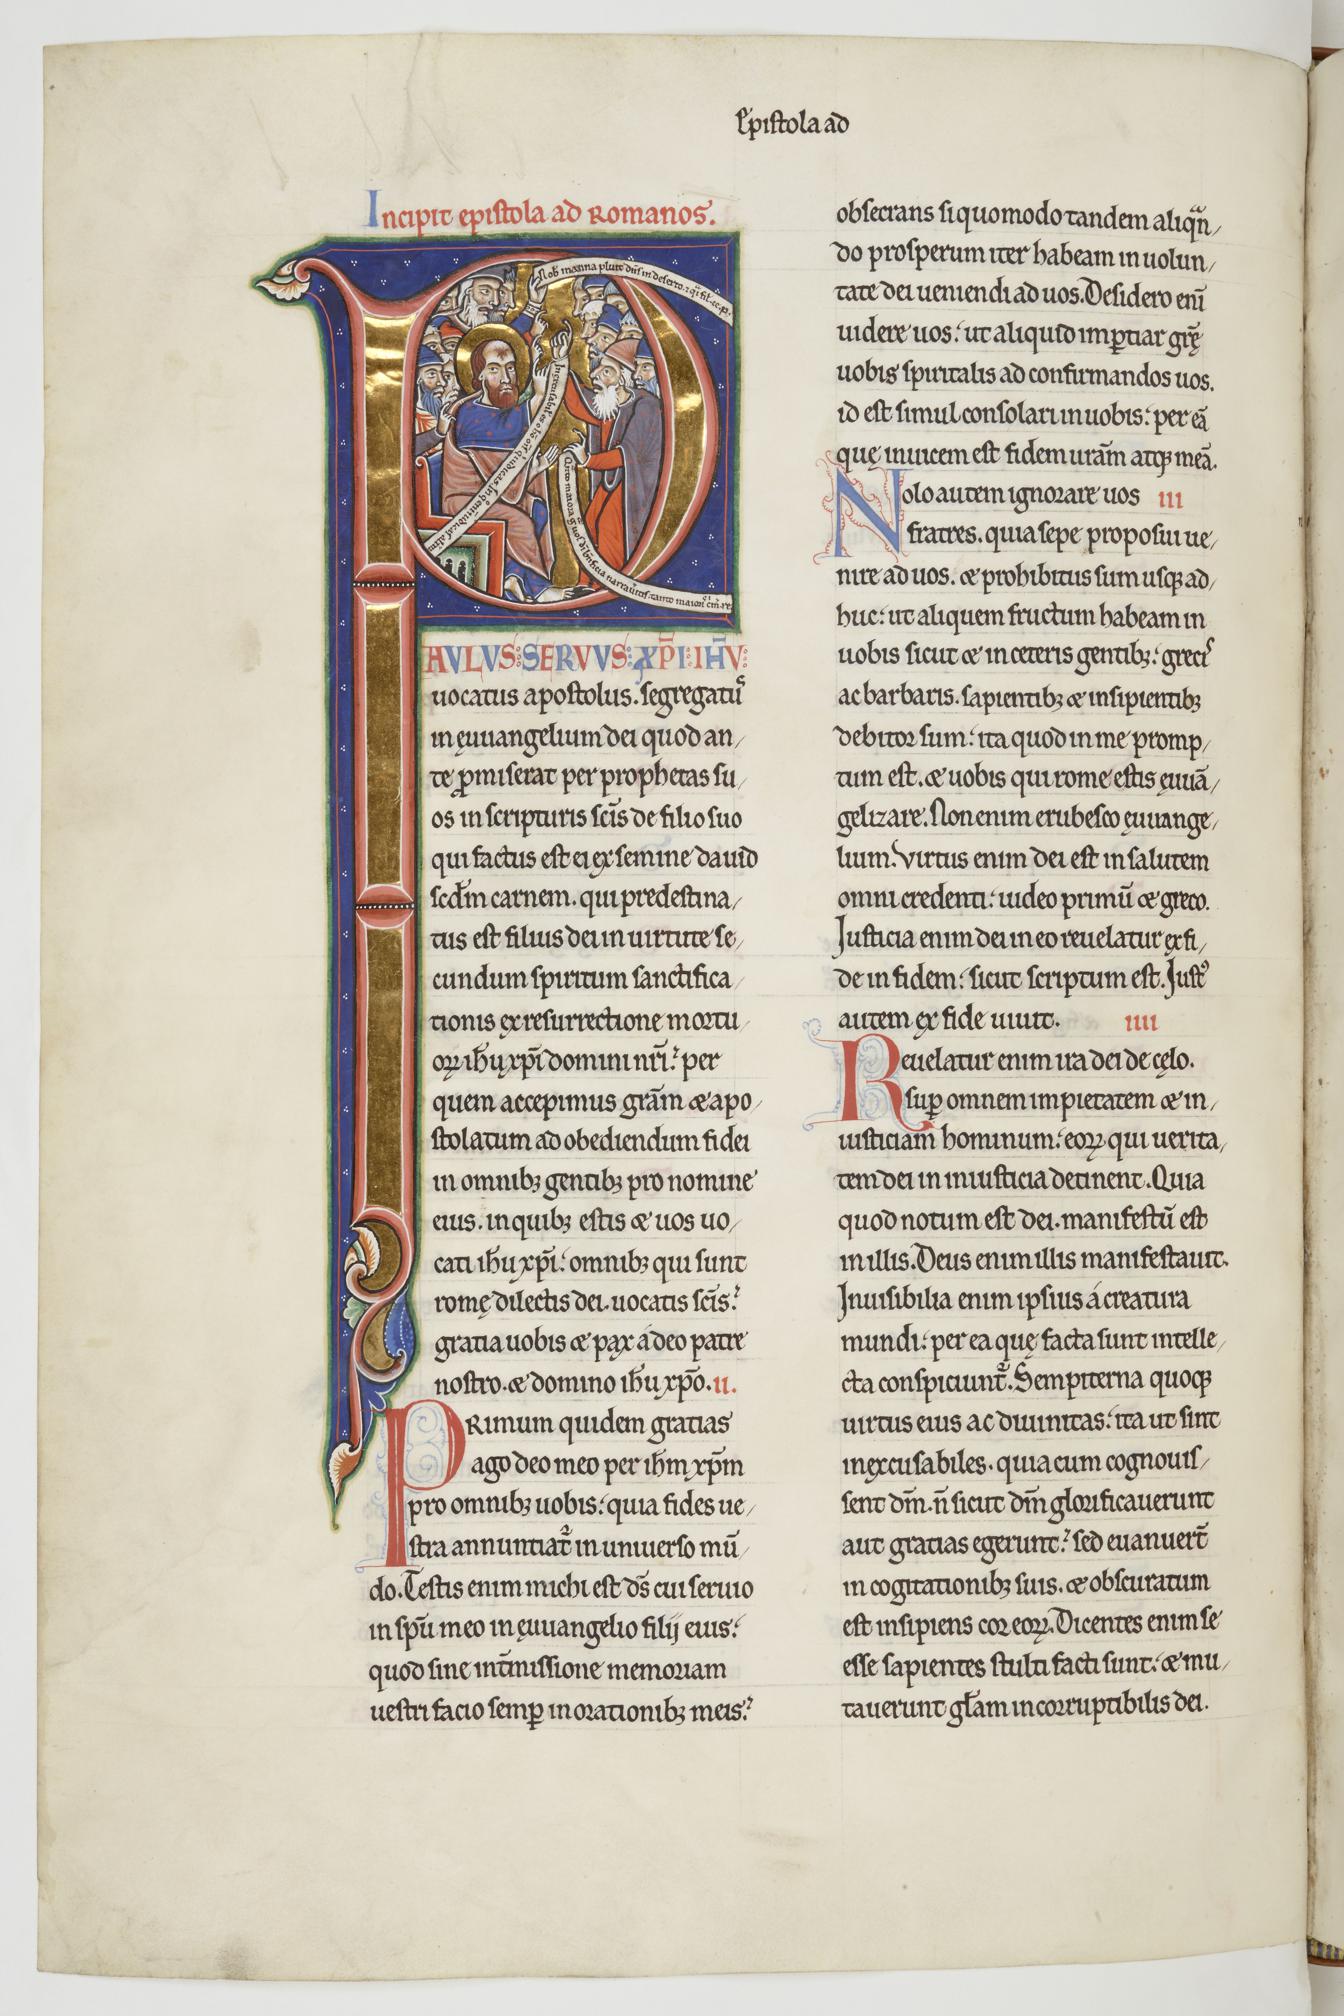 Epistola ad
Incipit epistola ad Romanos.
Nob manna pluit dn̄s in deserto.
AVLVS: SERVVS: XP̄I: IH̄V:
uocatus apostolus. segregatus
in ęuuangelium dei quod an/
te p̄miserat per prophetas su/
os in scripturis sc̄is de filio suo
qui factus est ei ex semine dauid
scd̄m carnem. qui predestina/
tus est filius dei in uirtute se/
cundum spiritum sanctifica/
tionis ex resurrectione mortu/
oꝝ ih̄u xp̄i domini nr̄i. per
quem accepimus gr̄am & apo/
stolatum ad obediendum fidei
in omnibꝫ gentibꝫ pro nomine
eius. in quibꝫ estis & uos uo/
cati ih̄u xp̄i: omnibꝫ qui sunt
romę dilectis dei. uocatis sc̄is:
gratia uobis & pax a deo patre
nostro. & domino ih̄u xp̄o. ii.
PRimum quidem gratias
ago deo meo per ih̄m xp̄m
pro omnibꝫ uobis: quia fides ue/
stra annuntiat᷑ in uniuerso mū/
do. Testis enim michi est ds̄ cui seruio
in sp̄u meo in ęuuangelio filij eius:
quod sine int̄missione memoriam
uestri facio semꝑ in orationibꝫ meis:
obsecrans si quomodo tandem aliqn̄/
do prosperum iter habeam in uolun/
tate dei ueniendi ad uos. Desidero eni̅
uidere uos: ut aliquid imꝑtiar gr̄ę
uobis spiritalis ad confirmandos uos.
id est simul consolari in uobis: per eā
quę inuicem est fidem ur̄am atqꝫ meā.
Nolo autem ignorare uos iii
fratres. quia sepe proposui ue/
nire ad uos. & prohibitus sum usqꝫ ad/
huc: ut aliquem fructum habeam in
uobis sicut & in ceteris gentibꝫ: grecis
ac barbaris. sapientibꝫ & insipientibꝫ
debitor sum: ita quod in me promp/
tum est. & uobis qui rome estis ęuuā/
gelizare. Non enim erubesco ęuuange/
lium. Virtus enim dei est in salutem
omni credenti: iudeo primū & greco.
Justicia enim dei in eo reuelatur ex fi/
de in fidem: sicut scriptum est. Justꝰ
autem ex fide uiuit. iiii
Reuelatur enim ira dei de cęlo.
suꝑ omnem impietatem & in/
iusticiam hominum: eoꝝ qui uerita/
tem dei in iniusticia detinent. Quia
quod notum est dei. manifestū est
in illis. Deus enim illis manifestauit.
Inuisibilia enim ipsius a creatura
mundi: per ea quę facta sunt intelle/
cta conspiciunt᷑. Sempiterna quoqꝫ
uirtus eius ac diuinitas: ita ut sint
inexcusabiles. quia cum cognouis/
sent dm̄. n̄ sicut dm̄ glorificauerunt
aut gratias egerunt: sed euanuert̄
in cogitationibꝫ suis. & obscuratum
est insipiens cor eoꝝ. Dicentes enim se
esse sapientes stulti facti sunt: & mu/
tauerunt gl̄am incorruptibilis dei.